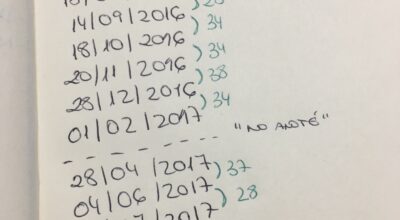 14/09/2016 ) 34
18/10/2016 ) 34
20/11/2016 ) 38
28/12/2016 ) 34
01/02/2017
"NO ANOTÉ"
28/04/2017 ) 37
04/06/2017 ) 28
/2017